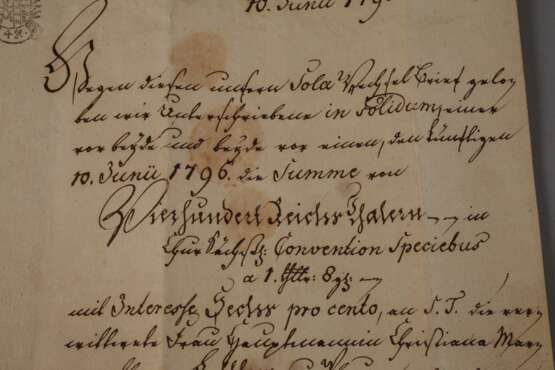 10. Junii 179
Gegen diesen unsern Sola Wechsel Brief gelo
ben wir Unterschriebene in Solidum, einer
vor beyde und beyde vor einen, den künftigen
10. Junii 1796. die Summe von
Vierhundert Reichs Thalern in
Chur Sächsß: Convention Speciebus
a 1. thlr: 8 gl:
mit Interesse, Sechs pro cento, an S. T. die verw
wittwete Frau Hauptmannin Christiana Mar